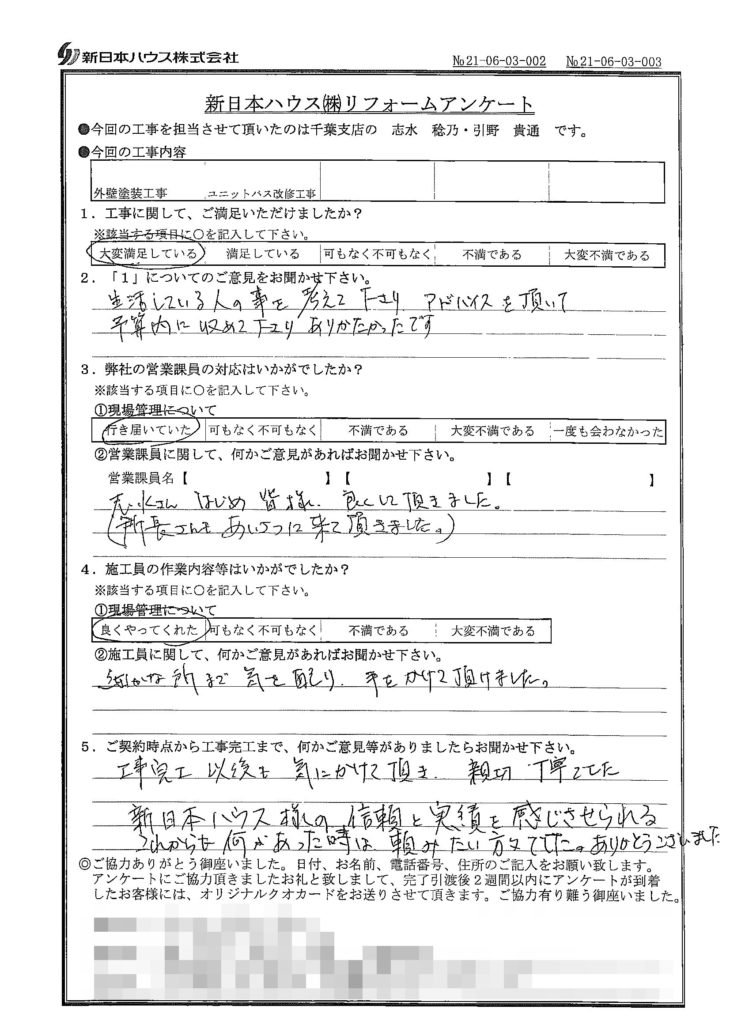 新日本ハウス株式会社
№21-06-03-002 №21-06-03-003
新日本ハウス㈱リフォームアンケート
●今回の工事を担当させて頂いたのは千葉支店の 志水 稔乃・引野 貴通 です。
●今回の工事内容
外壁塗装工事 ユニットバス改修工事
1．工事に関して、ご満足いただけましたか？
※該当する項目に○を記入して下さい。
大変満足している 満足している 可もなく不可もなく 不満である 大変不満である
2．「1」についてのご意見をお聞かせ下さい。
生活している人の事を考えて下さり アドバイスを頂いて
予算内に収めて下さり ありがたかったです
3．弊社の営業課員の対応はいかがでしたか？
※該当する項目に○を記入して下さい。
①現場管理について
行き届いていた 可もなく不可もなく 不満である 大変不満である 一度も会わなかった
②営業課員に関して、何かご意見があればお聞かせ下さい。
営業課員名【 】【 】【 】
志水さん はじめ 皆様、良くして頂きました。
(所長さんもあいさつに来て頂きました。)
4．施工員の作業内容等はいかがでしたか？
※該当する項目に○を記入して下さい。
①現場管理について
良くやってくれた 可もなく不可もなく 不満である 大変不満である
②施工員に関して、何かご意見があればお聞かせ下さい。
細かな所まで気を配り、手をかけて頂けました。
5．ご契約時点から工事完工まで、何かご意見等がありましたらお聞かせ下さい。
工事完工以後も気にかけて頂き、親切丁寧でした
新日本ハウス様の信頼と実績を感じさせられる
これからも何かあった時は頼みたい方々でした。ありがとうございました
◎ご協力ありがとう御座いました。日付、お名前、電話番号、住所のご記入をお願い致します。
アンケートにご協力頂きましたお礼と致しまして、完了引渡後2週間以内にアンケートが到着
したお客様には、オリジナルクオカードをお送りさせて頂きます。ご協力有り難う御座いました。